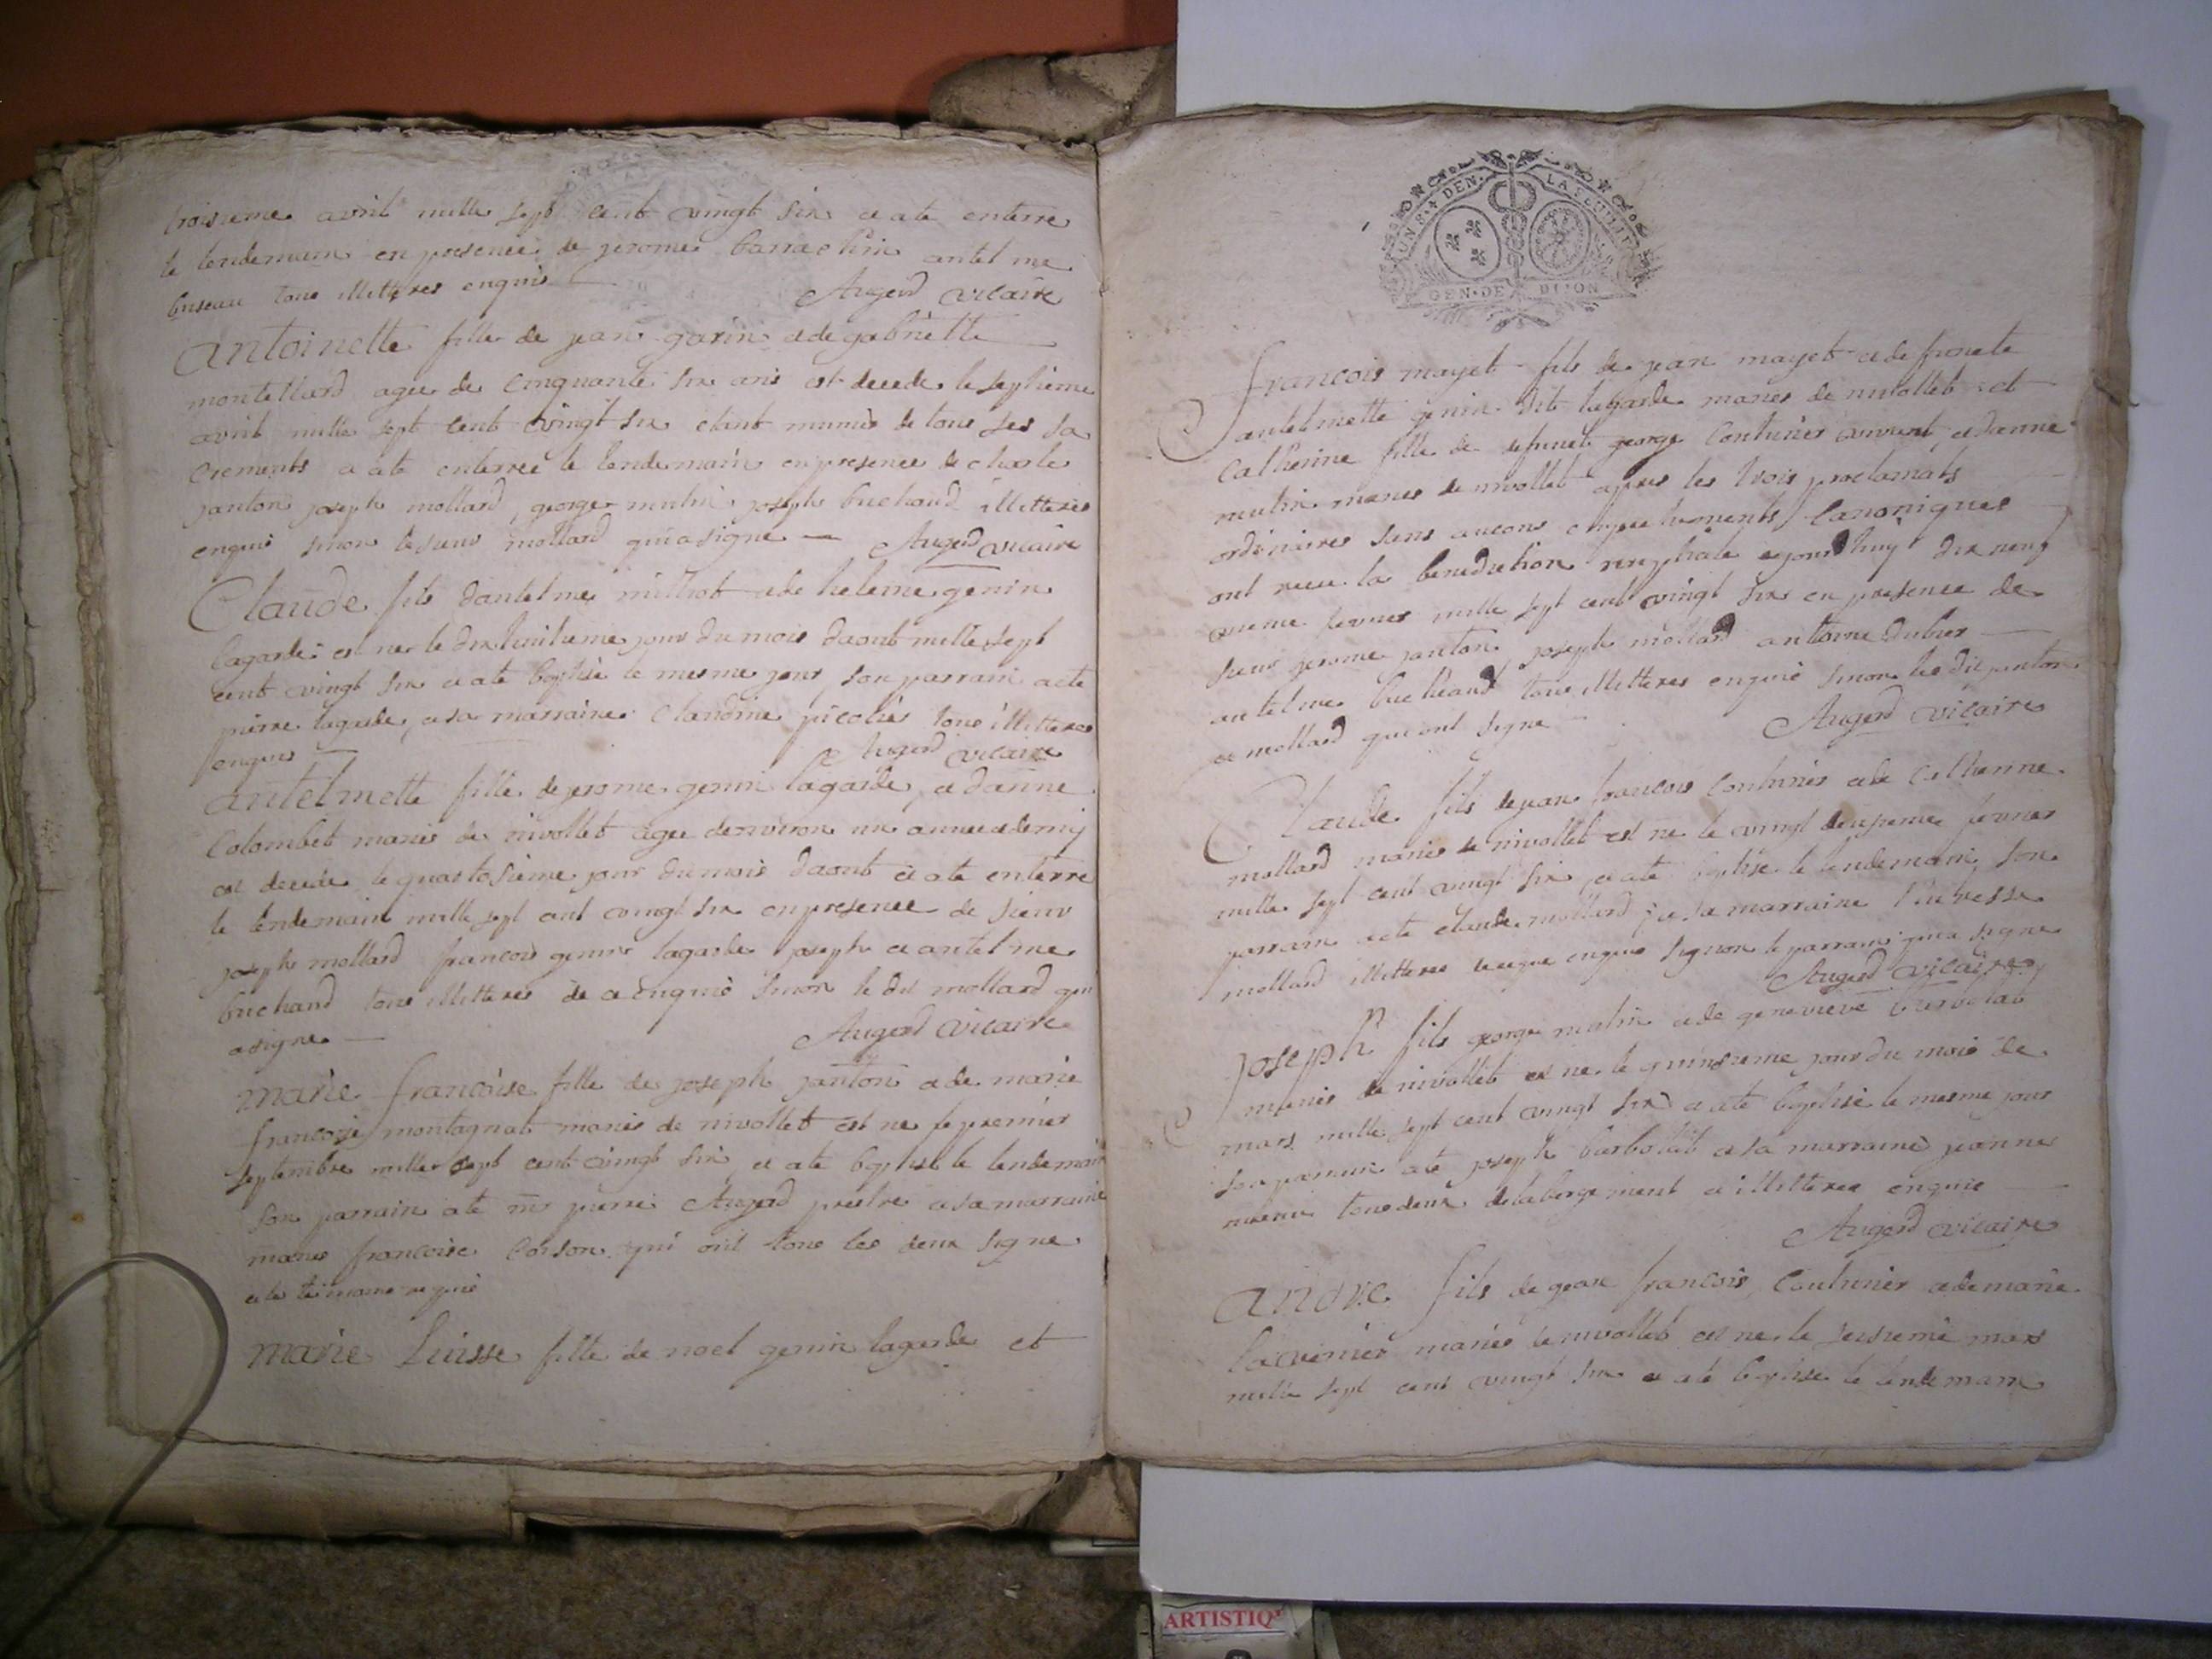 troisieme avril mille sept cent vingt six et a ete enterre
le lendemain en presence de jerome barrachin antelme
buseau tous illitteres enquis
Augerd vicaire
antoinette fille de jean garin et de gabriette
montellard agee de cinquante six ans est decede le septieme
avril mille sept cent vingt six etant munies de tous ses sa
crements a ete enterree le lendemain en presence de charle
janton joseph mollard, george mulin joseph buchaud illitteres
enquis sinon le sieur mollard qui a signe Augerd vicaire
Claude fils dantelme milliot et de helene genin
lagarde est ne le dix huitieme jour du mois daout mille sept
cent vingt six et a ete baptise le mesme jour, son parrain a ete
pierre lagarde, et sa marraine Claudine picolies tous illitteres
enquis Augerd vicaire
antelmette fille de jerome genin lagarde, et danne
Colombet maries de nivollet agee denviron un annee et demy
est decede le quatosieme jour du mois daout et a ete enterre
le lendemain mille sept cent vingt six en presence de sieur
joseph mollard francois genin lagarde joseph et antelme
buchaud tous illitteres de ce enquis sinon le dit mollard qui
a signe
Augerd vicaire
marie francoise fille de joseph janton et de marie
francoise montagnat maries de nivollet est ne le premier
septembre mille sept cent vingt six, et a ete baptise le lendemain
son parrain a ete mr pierre Augerd prestre et sa marraine
marie francoise corson qui ont tous les deux signe
marie Luisse fille de noel genin lagarde et
UN S. 4 DEN. LA FEUILLE
GEN. DE DIJON
francois mayet fils de jean mayet et de
antelmette genin dit lagarde maries de nivollet et
Catherine fille de defunet george Couturier vivant, et danne
mulin maries de nivollet apres les trois proclamats
ordinaires sans aucons empechements Canoniques
ont receu la benediction nuptiale aujourdhuy dix neuf
vieme fevrier mille sept cent vingt six en presence de
sieur jerome janton joseph mollard antoine dubier
antelme bucheaud tous illitteres enquis sinon les dit janton
et mollard qui ont signe
Augerd vicaire
Claude fils de jean francois Couturier et de Catherine
mollard maries de nivollet est ne le vingt deuxieme fevrier
mille sept cent vingt six, et a ete baptise le lendemain, son
parrain a ete claude mollard, et sa marraine
mollard illitteres enquis sinon le parrain qui a signe
Augerd vicaire
joseph fils george mulin et de genevieve burbollat
maries de nivollet est ne le quinsieme jour du mois de
mars mille sept cent vingt six et a ete baptise le mesme jour
son parrain a ete joseph burbollat et sa marraine jeanne
tous deux de labergement et illitteres enquis
Augerd vicaire
andre fils de jean francois Couturier et de marie
maries de nivollet est ne le seisieme mars
mille sept cent vingt six et a ete baptise le lendemain
ARTISTIQ